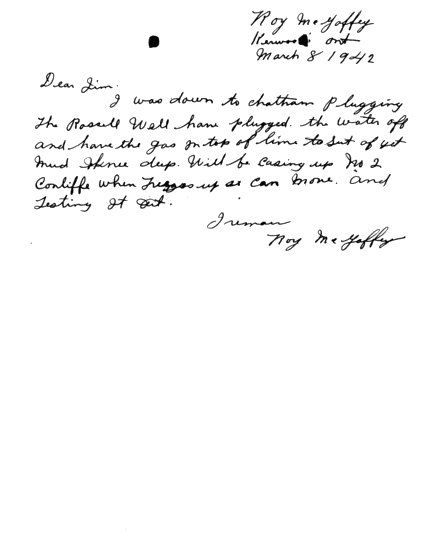 Roy McGaffey
Kerwood ont
March 8 1942
Dear Jim.
I was down to chatham Plugging
The Rossell Well have plugged. the water off
and have the gas on top of lime to Sut of yet
mud Knee deep. Will be Casing up No 2
Conliffe when up so can move. and
Testing It out.
I reman
Roy McGaffey